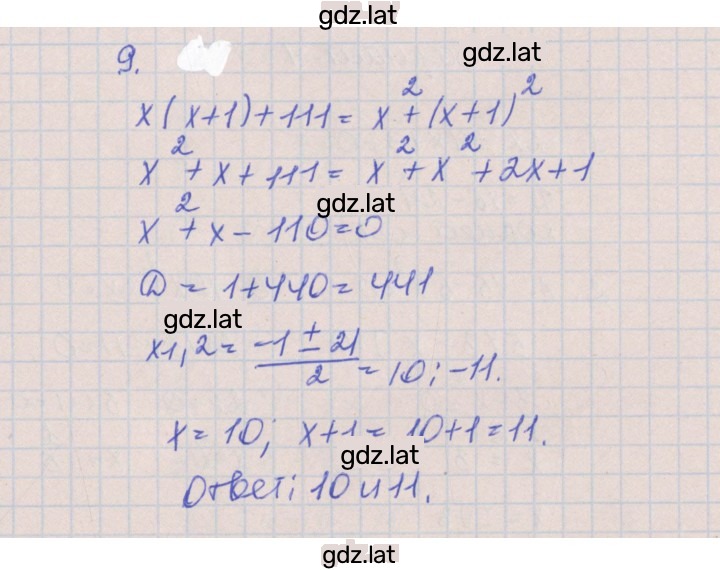 gdz.lat
9.
gdz.lat
x(x+1)+111= x²+(x+1)²
x²+x+111= x²+x²+2x+1
gdz.lat
x²+x-110=0
D = 1+440= 441
gdz.lat
x1,2= (-1 ± 21)/2 = 10; -11.
x= 10; x+1= 10+1=11.
gdz.lat
Ответ: 10 и 11.
gdz.lat